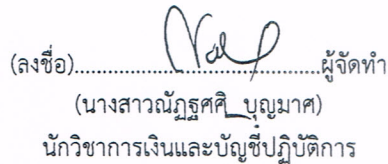 (ลงชื่อ)..........................................ผู้จัดทำ
(นางสาวณัฏฐศศิ บุญมาศ)
นักวิชาการเงินและบัญชีปฏิบัติการ